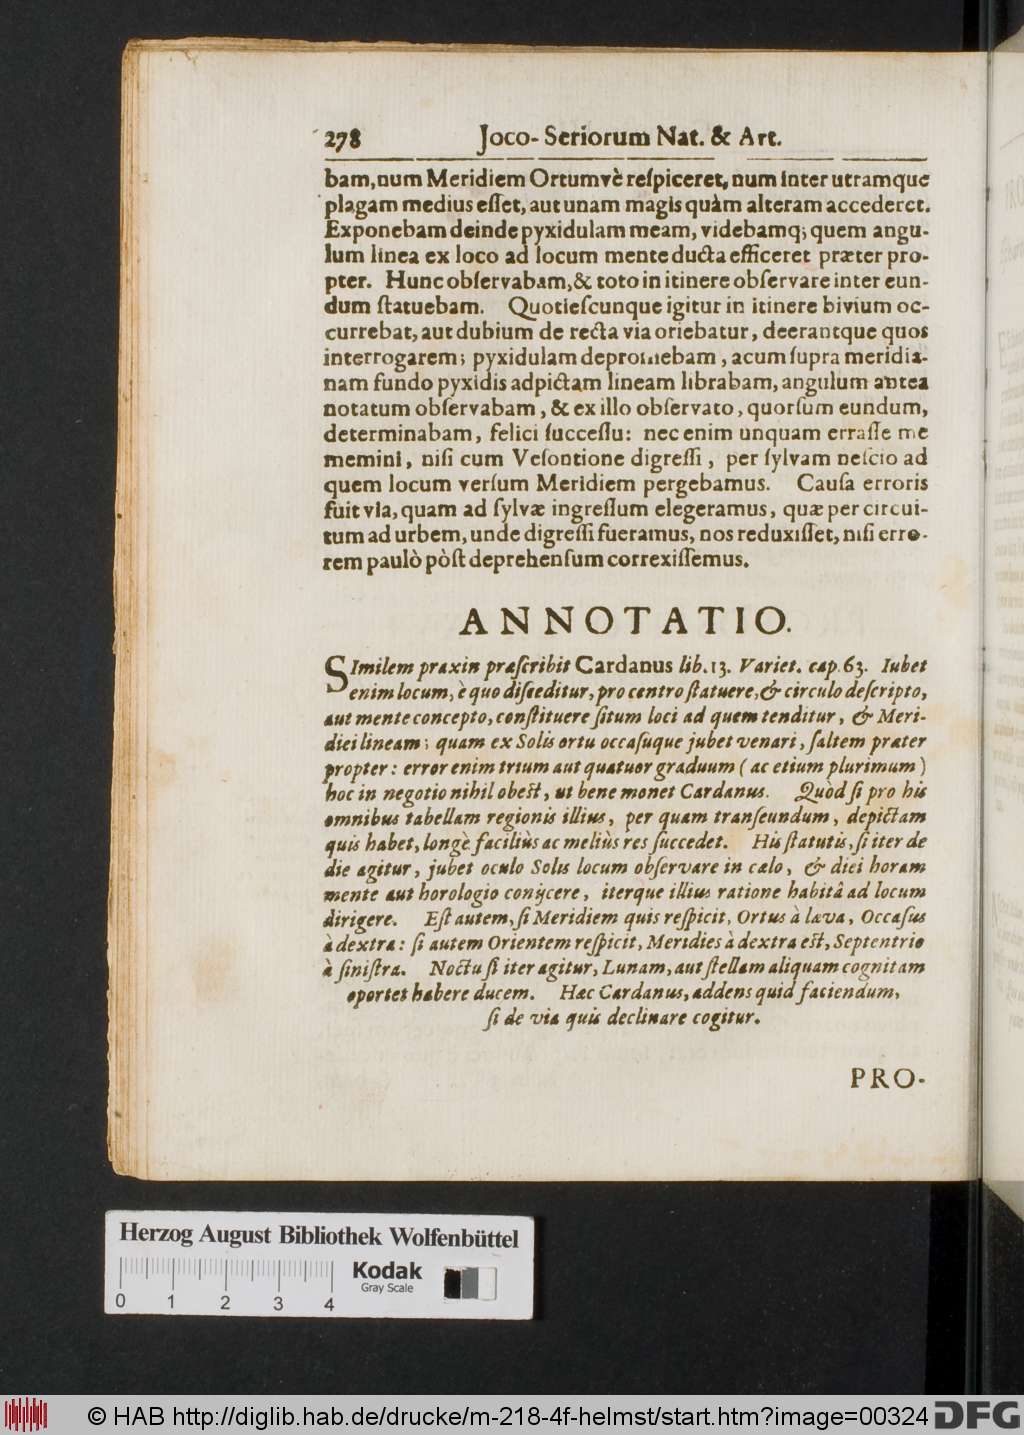 278 Joco-Seriorum Nat. & Art.
bam, num Meridiem Ortumvè reſpiceret, num inter utramque
plagam medius eſſet, aut unam magis quàm alteram accederet.
Exponebam deinde pyxidulam meam, videbamq; quem angu-
lum linea ex loco ad locum mente ducta efficeret præter pro-
pter. Hunc obſervabam, & toto in itinere obſervare inter eun-
dum ſtatuebam. Quotieſcunque igitur in itinere bivium oc-
currebat, aut dubium de recta via oriebatur, deerantque quos
interrogarem; pyxidulam depromebam, acum ſupra meridia-
nam fundo pyxidis adpictam lineam librabam, angulum antea
notatum obſervabam, & ex illo obſervato, quorſum eundum,
determinabam, felici ſucceſſu: nec enim unquam erraſſe me
memini, niſi cum Veſontione digreſſi, per ſylvam neſcio ad
quem locum verſum Meridiem pergebamus. Cauſa erroris
fuit via, quam ad ſylvæ ingreſſum elegeramus, quæ per circui-
tum ad urbem, unde digreſſi fueramus, nos reduxiſſet, niſi erro-
rem paulò pòſt deprehenſum correxiſſemus.
ANNOTATIO.
SImilem praxin præſcribit Cardanus lib. 13. Variet. cap. 63. Iubet
enim locum, è quo diſceditur, pro centro ſtatuere, & circulo deſcripto,
aut mente concepto, conſtituere ſitum loci ad quem tenditur, & Meri-
diei lineam; quam ex Solis ortu occaſuque jubet venari, ſaltem præter
propter: error enim trium aut quatuor graduum (ac etium plurimum)
hoc in negotio nihil obeſt, ut bene monet Cardanus. Quòd ſi pro his
omnibus tabellam regionis illius, per quam tranſeundum, depictam
quis habet, longè faciliùs ac meliùs res ſuccedet. His ſtatutis, ſi iter de
die agitur, jubet oculo Solis locum obſervare in cælo, & diei horam
mente aut horologio conijcere, iterque illius ratione habitâ ad locum
dirigere. Eſt autem, ſi Meridiem quis reſpicit, Ortus à læva, Occaſus
à dextra: ſi autem Orientem reſpicit, Meridies à dextra eſt, Septentrio
à ſiniſtra. Noctu ſi iter agitur, Lunam, aut ſtellam aliquam cognitam
oportet habere ducem. Hæc Cardanus, addens quid faciendum,
ſi de via quis declinare cogitur.
PRO-
Herzog August Bibliothek Wolfenbüttel
Kodak
Gray Scale
0 1 2 3 4
© HAB http://diglib.hab.de/drucke/m-218-4f-helmst/start.htm?image=00324
DFG